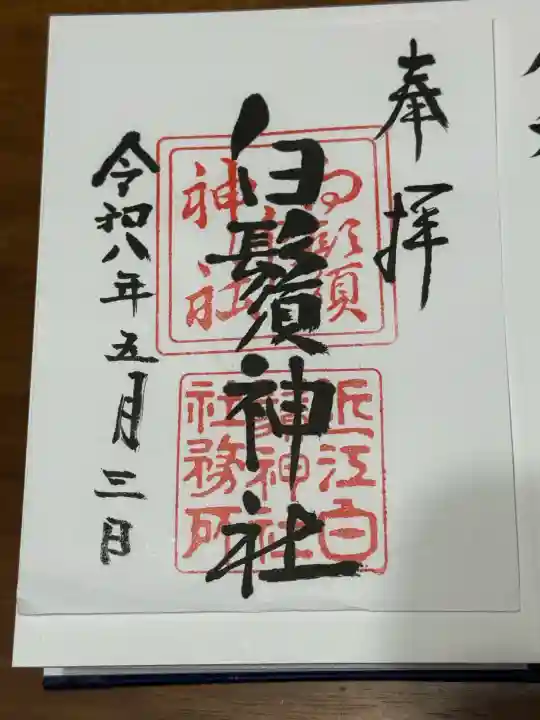 奉拝
白鬚神社
令和八年五月三日
白鬚
神社
近江白
鬚神社
社務所